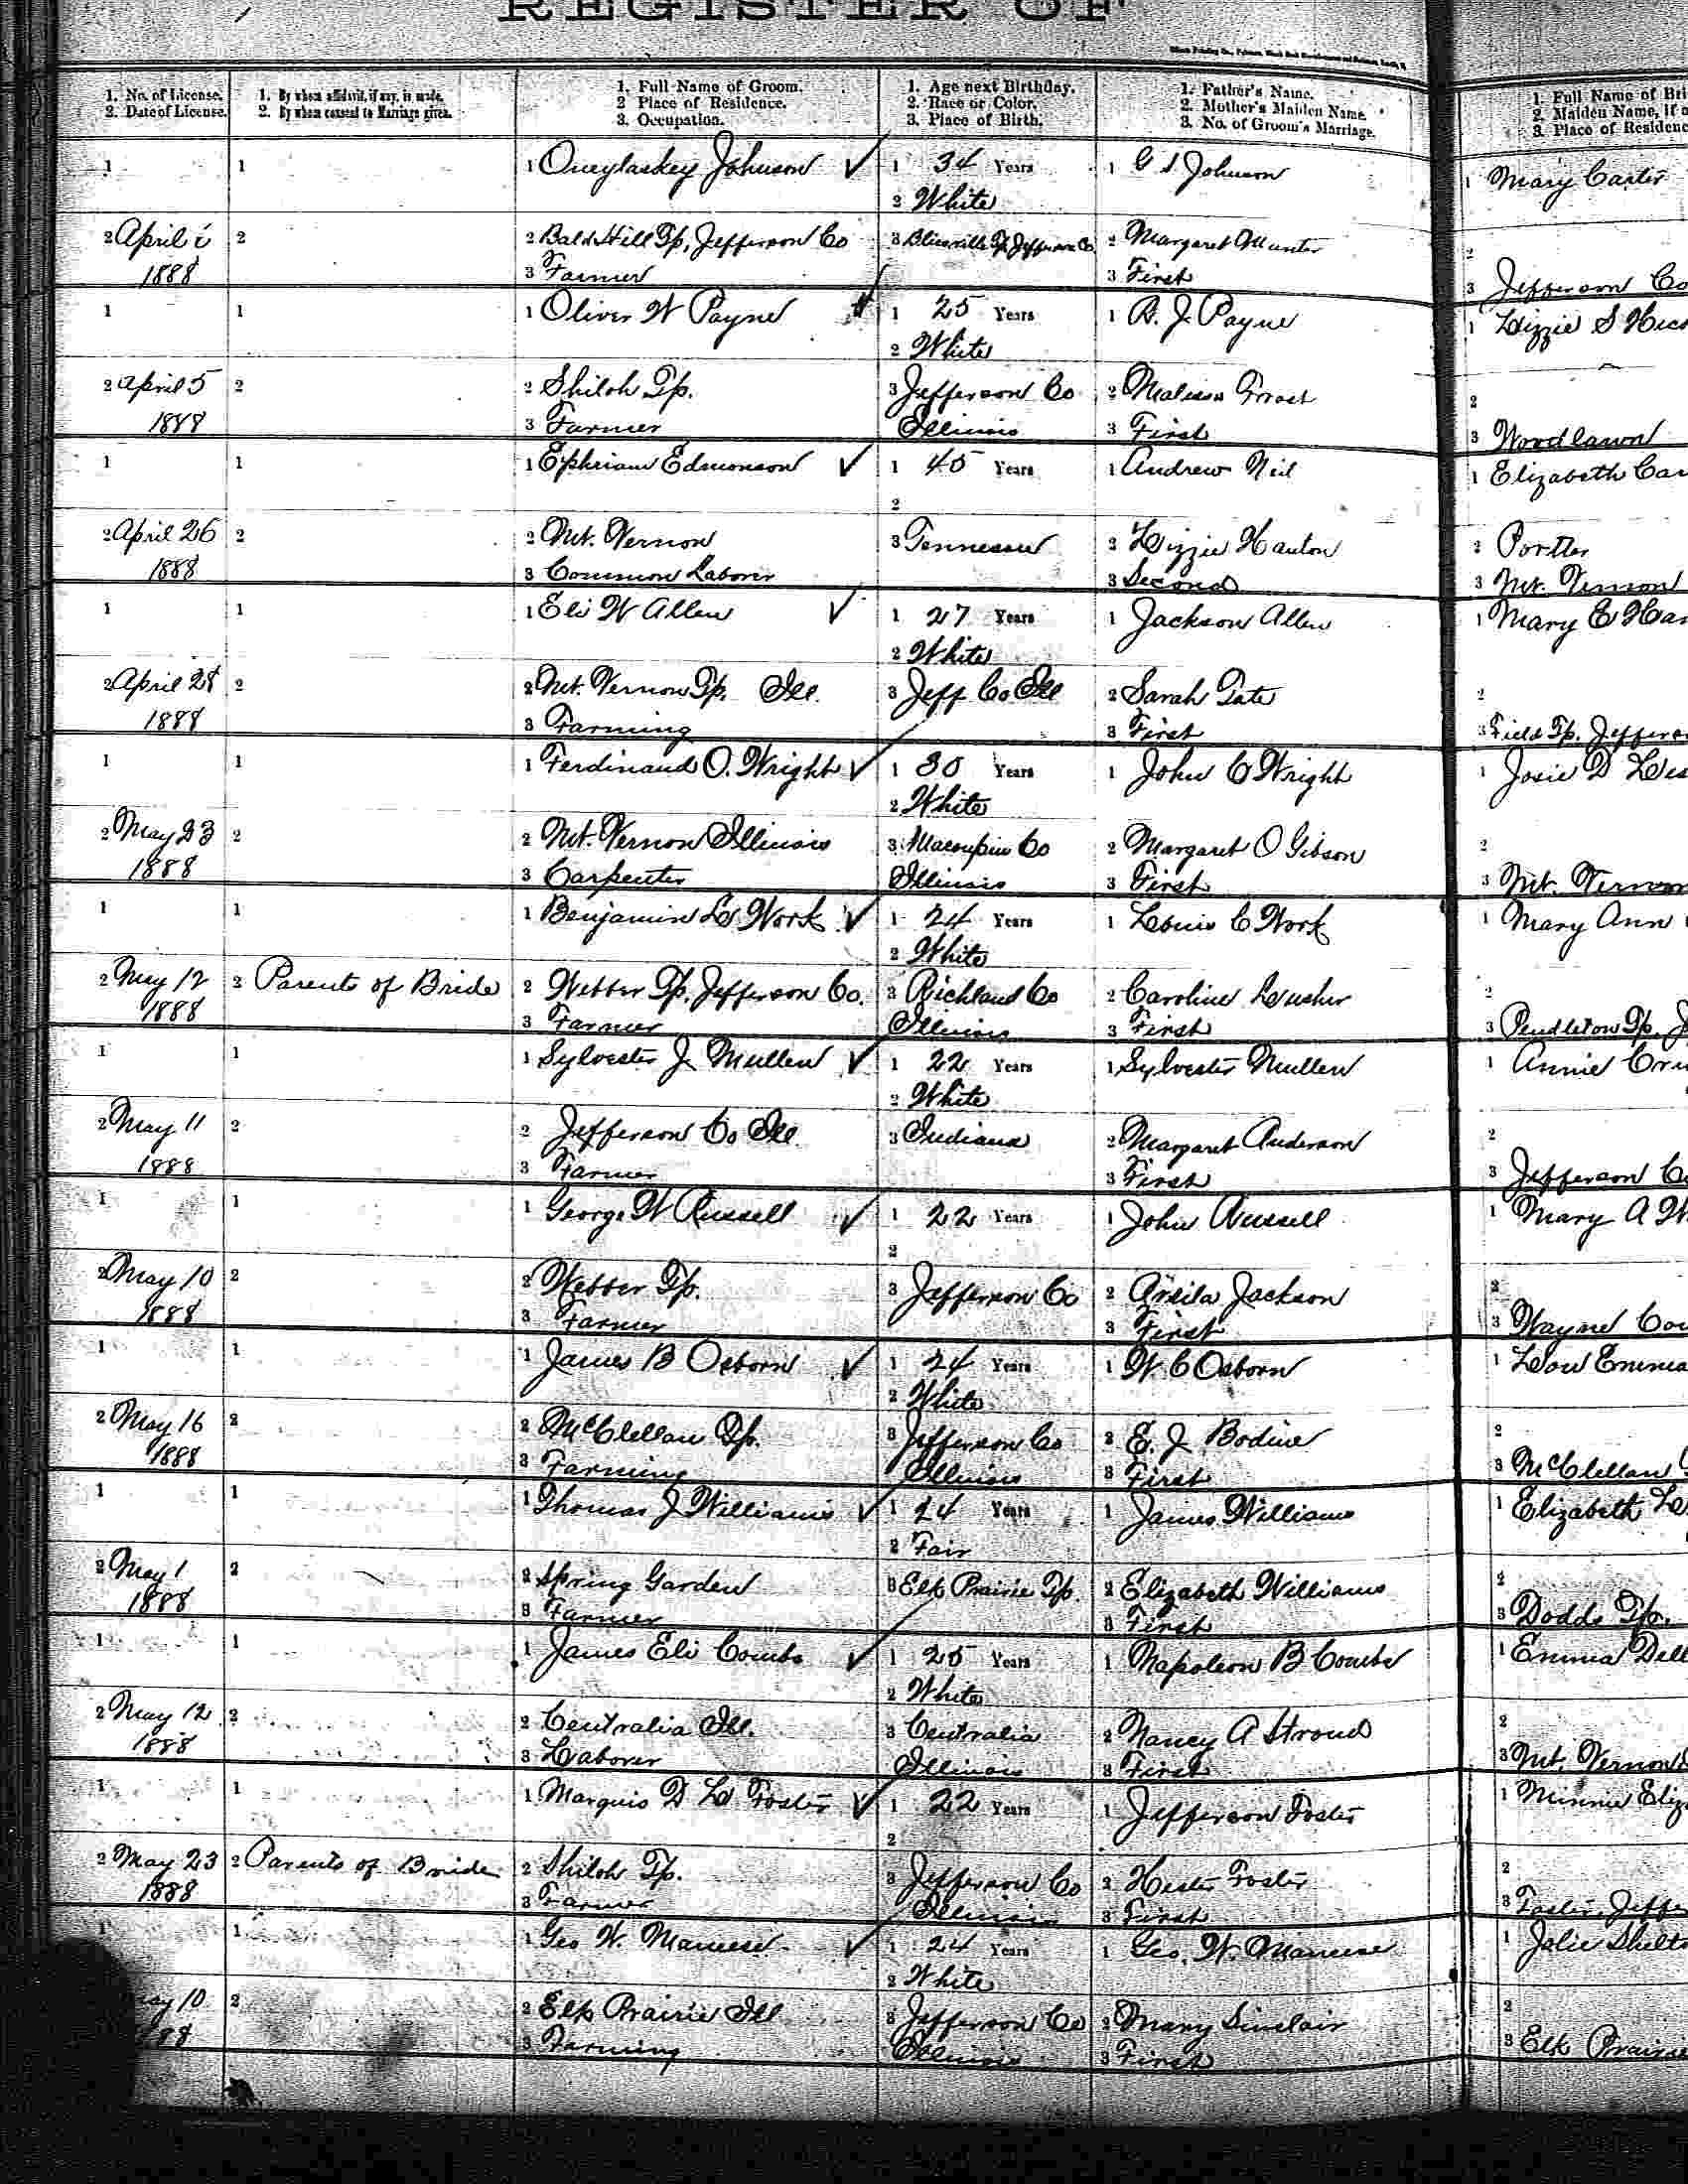 REGISTER OF
1. No. of License. 2. Date of License.
1. By whom affidavit, if any, is made. 2. By whom consent to Marriage given.
1. Full Name of Groom. 2 Place of Residence. 3. Occupation.
1. Age next Birthday. 2. Race or Color. 3. Place of Birth.
1. Father's Name. 2. Mother's Maiden Name. 3. No. of Groom's Marriage.
1. Full Name of Bri 2. Maiden Name, if a 3. Place of Residenc
1 1 1 Johnson 1 34 Years 1 G S Johnson 1 Mary Carter
2 White
2 April 2 2 Bald Hill Tp, Jefferson Co 3 Blissville Tp Jefferson Co 2 Margaret 2
1888 3 Farmer 3 First 3 Jefferson Co
1 1 1 Oliver W Payne 1 25 Years 1 R. J. Payne 1 Lizzie S Hic
2 White
2 April 5 2 2 Shiloh Tp. 3 Jefferson Co 2 Malissa 2
1888 3 Farmer Illinois 3 First 3 Woodlawn
1 1 1 Ephriam Edmonson 1 45 Years 1 Andrew Neil 1 Elizabeth Car
2
2 April 26 2 2 Mt. Vernon 3 Tennessee 2 Lizzie Hanton 2 Porter
1888 3 Common Laborer 3 Second 3 Mt. Vernon
1 1 1 Eli W Allen 1 27 Years 1 Jackson Allen 1 Mary E Har
2 White
2 April 28 2 2 Mt. Vernon Tp. Ill. 3 Jeff Co Ill 2 Sarah Tate 2
1888 3 Farming 3 First 3 Field Tp. Jeffers
1 1 1 Ferdinand O. Wright 1 30 Years 1 John C Wright 1 Josie D
2 White
2 May 23 2 2 Mt. Vernon Illinois 3 Macoupin Co 2 Margaret O Gibson 2
1888 3 Carpenter Illinois 3 First 3 Mt. Vernon
1 1 1 Benjamin L Work 1 24 Years 1 Louis C Work 1 Mary Ann
2 White
2 May 12 2 Parents of Bride 2 Webber Tp. Jefferson Co. 3 Richland Co 2 Caroline Lusher 2
1888 3 Farmer Illinois 3 First 3 Pendleton Tp. J
1 1 1 Sylvester J. Mullen 1 22 Years 1 Sylvester Mullen 1 Annie Cr
2 White
2 May 11 2 2 Jefferson Co Ill. 3 Indiana 2 Margaret Anderson 2
1888 3 Farmer 3 First 3 Jefferson C
1 1 1 George W Russell 1 22 Years 1 John Russell 1 Mary A W
2
2 May 10 2 2 Webber Tp. 3 Jefferson Co 2 Jackson 2
1888 3 Farmer 3 First 3 Wayne Cou
1 1 1 James B Osborn 1 24 Years 1 W. C Osborn 1 Lou Emma
2 White
2 May 16 2 2 McClellan Tp. 3 Jefferson Co 2 E. J. Bodine 2
1888 3 Farming Illinois 3 First 3 McClellan
1 1 1 Thomas J Williams 1 24 Years 1 James Williams 1 Elizabeth Le
2 Fair
2 May 1 2 2 Spring Garden 3 Elk Prairie Tp. 2 Elizabeth Williams 2
1888 3 Farmer 3 First 3 Dodds Tp.
1 1 1 James Eli Combs 1 25 Years 1 Napoleon B Combs 1 Emma Dell
2 White
2 May 12 2 2 Centralia Ill. 3 Centralia 2 Nancy A Stroud 2
1888 3 Laborer Illinois 3 First 3 Mt. Vernon
1 1 1 Marquis D L Foster 1 22 Years 1 Jefferson Foster 1 Minnie Eliz
2
2 May 23 2 Parents of Bride 2 Shiloh Tp. 3 Jefferson Co 2 Hester Foster 2
1888 3 Farmer Illinois 3 First 3 Jeffe
1 1 1 Geo W. 1 24 Years 1 Geo. W. 1 Shelto
2 White
May 10 2 2 Elk Prairie Ill 3 Jefferson Co 2 Mary Sinclair 2
888 3 Farming Illinois 3 First 3 Elk Prairie